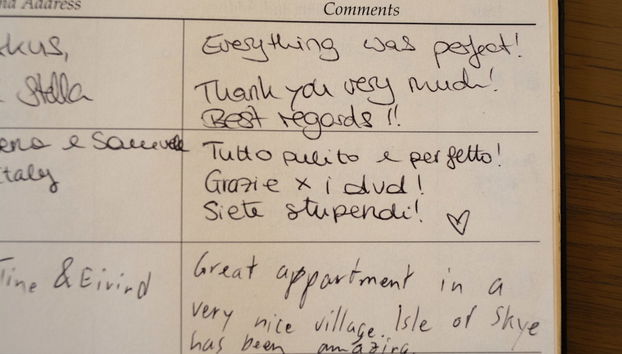 Address Comments
Everything was perfect!
Stella Thank you very much!
Best regards!!
e Samuele Tutto pulito e perfetto!
Italy Grazie x i dvd!
Siete stupendi! ♡
Tine & Eivind Great appartment in a
very nice village. Isle of Skye
has been amazing